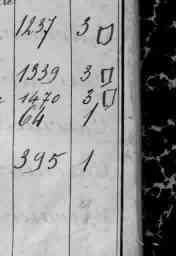 1237 3 □
1339 3 □
1470 3 □
64 1
395 1